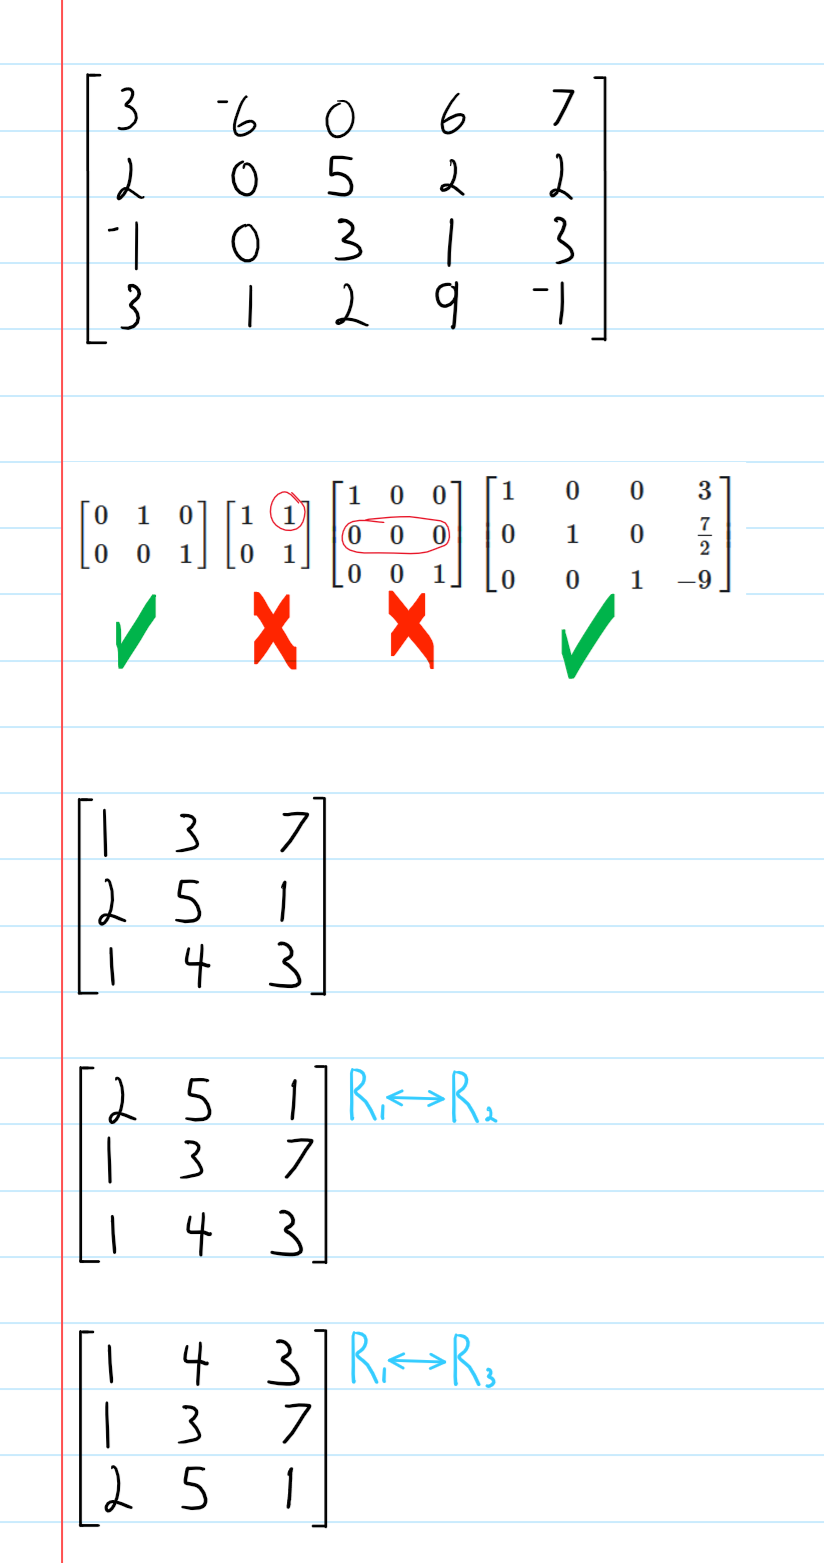 3 -6 0 6 7
2 0 5 2 2
-1 0 3 1 3
3 1 2 9 -1
0 1 0
0 0 1
1 1
0 1
1 0 0
0 0 0
0 0 1
1 0 0 3
0 1 0 7/2
0 0 1 −9
1 3 7
2 5 1
1 4 3
2 5 1 R₁↔R₂
1 3 7
1 4 3
1 4 3 R₁↔R₃
1 3 7
2 5 1